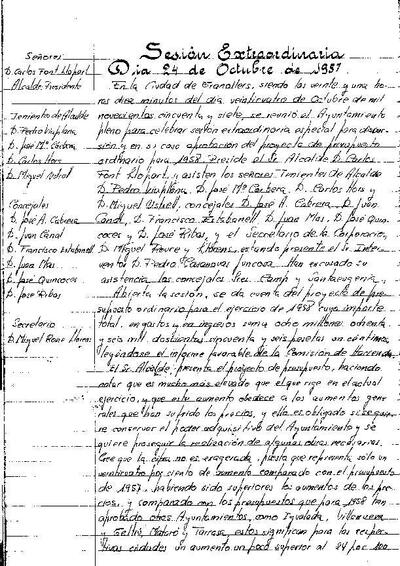 Sesión Extraordinaria
Día 24 de Octubre de 1957
Señores
D. Carlos Font Llopart
Alcalde, Presidente
Tenientes de Alcalde
D. Pedro
D. José Mª Corbera
D. Carlos Hors
D. Miguel
Concejales
D. José A. Cabrera
D. Juan Canal
D. Francisco Estabanell
D. Juan Mas
D. José Quincoces
D. José Ribas
Secretario
D. Miguel
En la Ciudad de Granollers, siendo las veinte y una ho-
ras diez minutos del día veinticuatro de Octubre de mil
novecientos cincuenta y siete, se reunió el Ayuntamiento
pleno para celebrar sesión extraordinaria especial para discu-
sión y en su caso aprobación del proyecto de presupuesto
ordinario para 1958. Preside el Sr. Alcalde D. Carlos
Font Llopart, y asisten los señores Tenientes de Alcalde
D. Pedro D. José Mª Corbera, D. Carlos Hors y
D. Miguel concejales D. José A. Cabrera, D. Juan
Canal, D. Francisco Estabanell, D. Juan Mas, D. José Quin-
coces y D. José Ribas, y el Secretario de la Corporación,
D. Miguel y Llorens, estando presente el Sr. Inter-
ventor D. Pedro Casanovas Juncosa. Han excusado su
asistencia los concejales Sres. Camp y Santaeugenia.
Abierta la sesión, se da cuenta del proyecto de pre-
supuesto ordinario para el ejercicio de 1958 cuyo importe
total, en gastos y en ingresos suma ocho millones ochenta
y seis mil doscientas cincuenta y seis pesetas un céntimo,
leyéndose el informe favorable de la Comisión de Hacienda.
El Sr. Alcalde, presenta el proyecto de presupuesto, haciendo
notar que es mucho más elevado que el que rige en el actual
ejercicio, y que este aumento obedece a los aumentos gene-
rales que han sufrido los precios, y ello es obligado si se quie-
re conservar el poder adquisitivo del Ayuntamiento y se
quiere proseguir la realización de algunas obras necesarias.
Cree que la cifra no es exagerada, puesto que representa sólo un
veinticuatro por ciento de aumento comparado con el presupuesto
de 1957, habiendo sido superiores los aumentos de los pre-
cios, y comparado con los presupuestos que para 1958 han
aprobado otros Ayuntamientos, como Igualada, Villanueva
y Geltrú, Mataró y Tarrasa, estos significan para las respec-
tivas ciudades un aumento un poco superior al 24 por